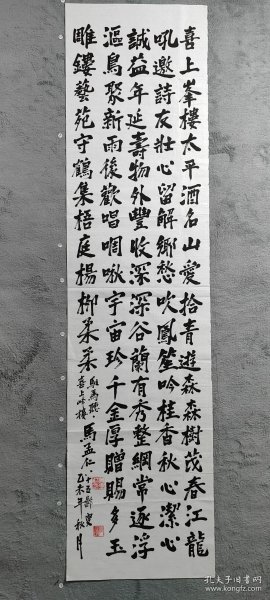 喜上峯樓太平酒名山愛拾青遊森森樹茂春江龍
吼邀詩友壯心留解鄉愁吹鳳笙吟桂香秋心潔心
誠益年延壽物外豐收深深谷蘭有秀整綱常逐浮
漚鳥聚新雨後歡唱啁啾宇宙珍千金厚贈賜多玉
雕鏤藝苑守鶴集梧庭楊柳柔柔
駐馬聽·喜上峰樓
馬孟仁
乙未年秋月
孔夫子旧书网